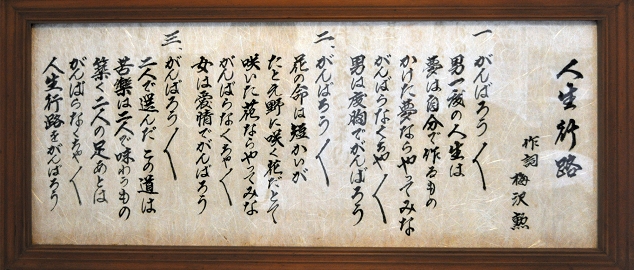 人生行路
作詞 梅沢 勲
一、がんばろう〱
男一度の人生は
夢は自分で作るもの
かけた夢ならやってみな
がんばらなくちゃ〱
男は度胸でがんばろう
二、がんばろう〱
花の命は短かいが
たとえ野に咲く花だとて
咲いた花ならやってみな
がんばらなくちゃ〱
女は愛情でがんばろう
三、がんばろう〱
二人で選んだこの道は
苦楽は二人で味わうもの
築く二人の足あとは
がんばらなくちゃ〱
人生行路をがんばろう